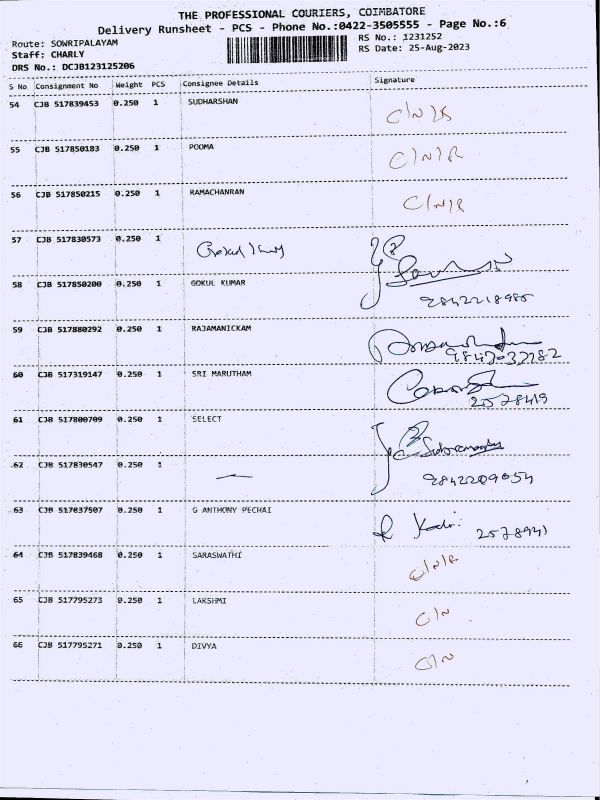 THE PROFESSIONAL COURIERS, COIMBATORE
Delivery Runsheet - PCS - Phone No.:0422-3505555 - Page No.:6
Route: SOWRIPALAYAM RS No.: 1231252
Staff: CHARLY RS Date: 25-Aug-2023
DRS No.: DCJB123125206
S No Consignment No Weight PCS Consignee Details Signature
54 CJB 517839453 0.250 1 SUDHARSHAN
55 CJB 517850183 0.250 1 POOMA C/N/R
56 CJB 517850215 0.250 1 RAMACHANRAN C/N/R
57 CJB 517830573 0.250 1
58 CJB 517850200 0.250 1 GOKUL KUMAR
9842218986
59 CJB 517880292 0.250 1 RAJAMANICKAM
60 CJB 517319147 0.250 1 SRI MARUTHAM
2578419
61 CJB 517800709 0.250 1 SELECT
62 CJB 517830547 0.250 1
9842209054
63 CJB 517837507 0.250 1 G ANTHONY PECHAI
2578941
64 CJB 517839468 0.250 1 SARASWATHI C/N/R
65 CJB 517795273 0.250 1 LAKSHMI C/N
66 CJB 517795271 0.250 1 DIVYA C/N